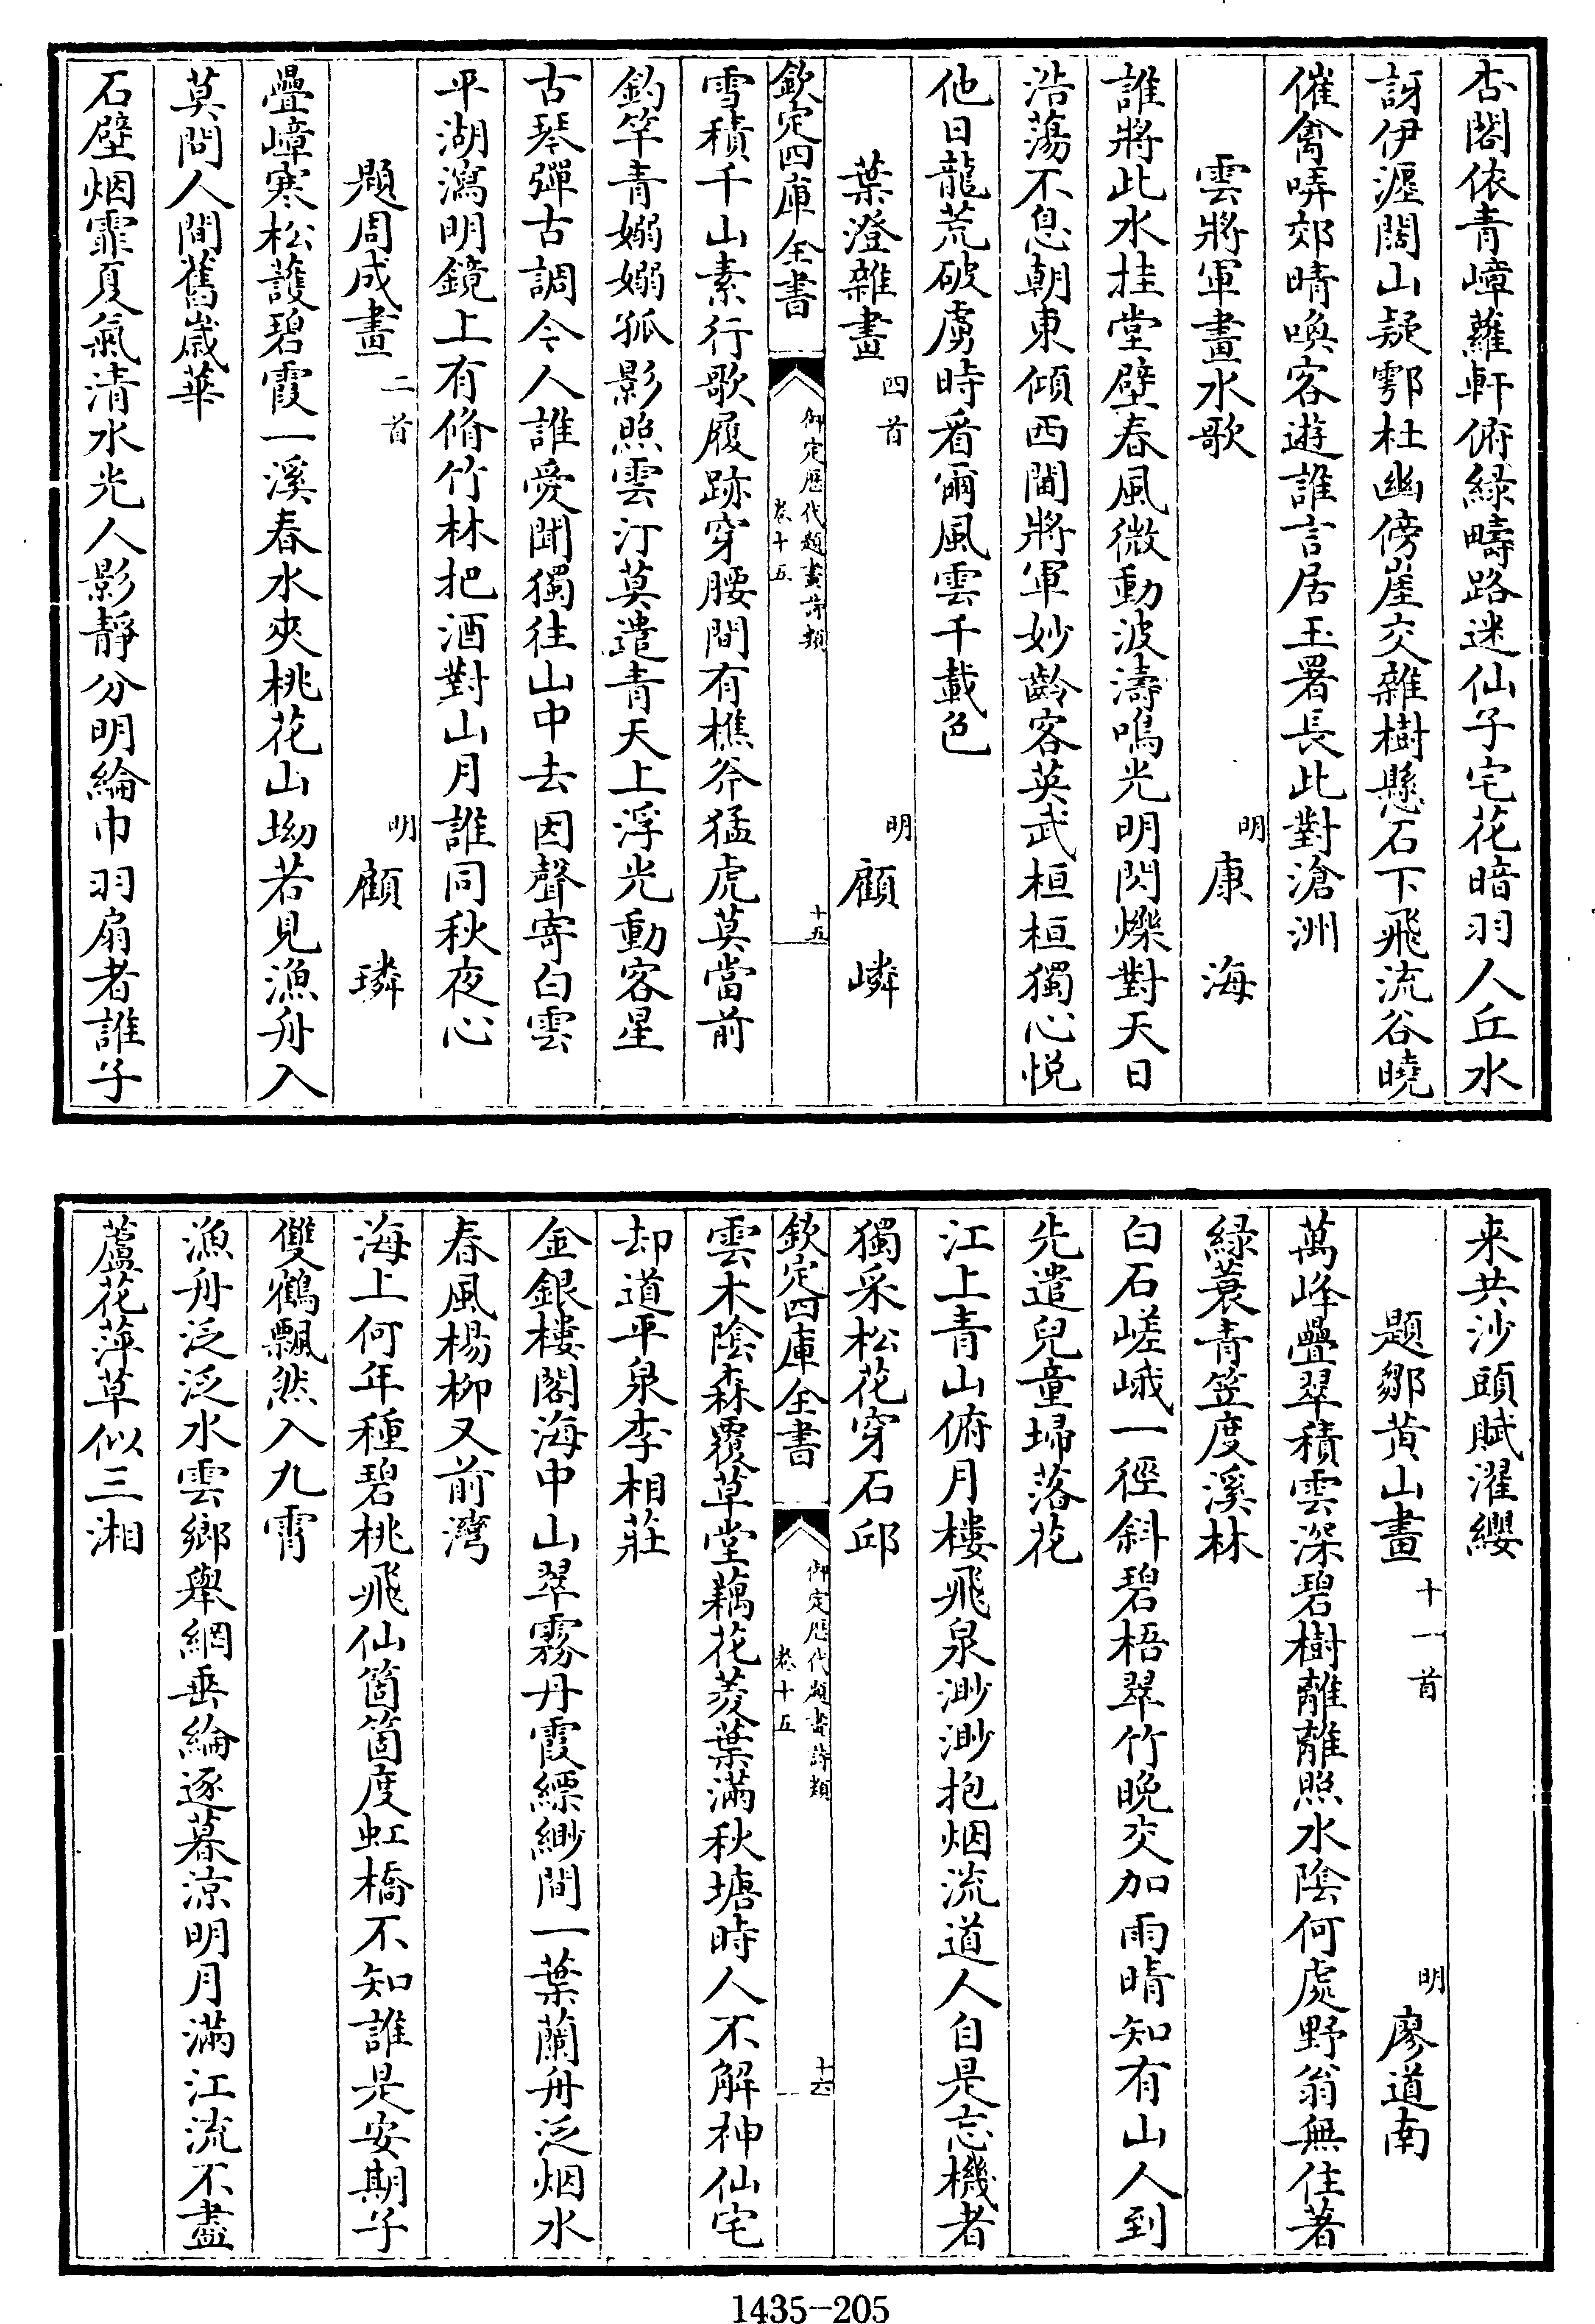 杏閣依青嶂蘿軒俯綠疇路迷仙子宅花暗羽人丘水
訝伊瀍闊山疑鄠杜幽傍崖交雜樹懸石下飛流谷曉
催禽哢郊晴喚客遊誰言居玉署長此對滄洲
雲將軍畫水歌 明 康海
誰將此水挂堂壁春風微動波濤鳴光明閃爍對天日
浩蕩不息朝東傾西閫將軍妙齡客英武桓桓獨心悅
他日龍荒破虜時看爾風雲千載色
葉澄雜畫 四首 明 顧嶙
欽定四庫全書 御定歷代題畫詩類 卷十五 十五
雪積千山素行歌履跡穿腰間有樵斧猛虎莫當前
釣竿青嫋嫋孤影照雲汀莫遣青天上浮光動客星
古琴彈古調今人誰愛聞獨往山中去因聲寄白雲
平湖瀉明鏡上有脩竹林把酒對山月誰同秋夜心
題周成畫 二首 明 顧璘
疊嶂寒松護碧霞一溪春水夾桃花山坳若見漁舟入
莫問人間舊歲華
石壁烟霏夏氣清水光人影靜分明綸巾羽扇者誰子
来共沙頭賦濯纓
題鄒黄山畫 十一首 明 廖道南
萬峰疊翠積雲深碧樹離離照水陰何處野翁無住著
綠蓑青笠度溪林
白石嵯峨一徑斜碧梧翠竹晚交加雨晴知有山人到
先遣兒童埽落花
江上青山俯月樓飛泉渺渺抱烟流道人自是忘機者
獨采松花穿石邱
欽定四庫全書 御定歷代題畫詩類 卷十五 十六
雲木陰森覆草堂藕花菱葉滿秋塘時人不解神仙宅
却道平泉李相莊
金銀樓閣海中山翠霧丹霞縹緲間一葉蘭舟泛烟水
春風楊柳又前灣
海上何年種碧桃飛仙箇箇度虹橋不知誰是安期子
雙鶴飄然入九霄
漁舟泛泛水雲鄉舉網垂綸逐暮涼明月滿江流不盡
蘆花萍草似三湘
1435-205